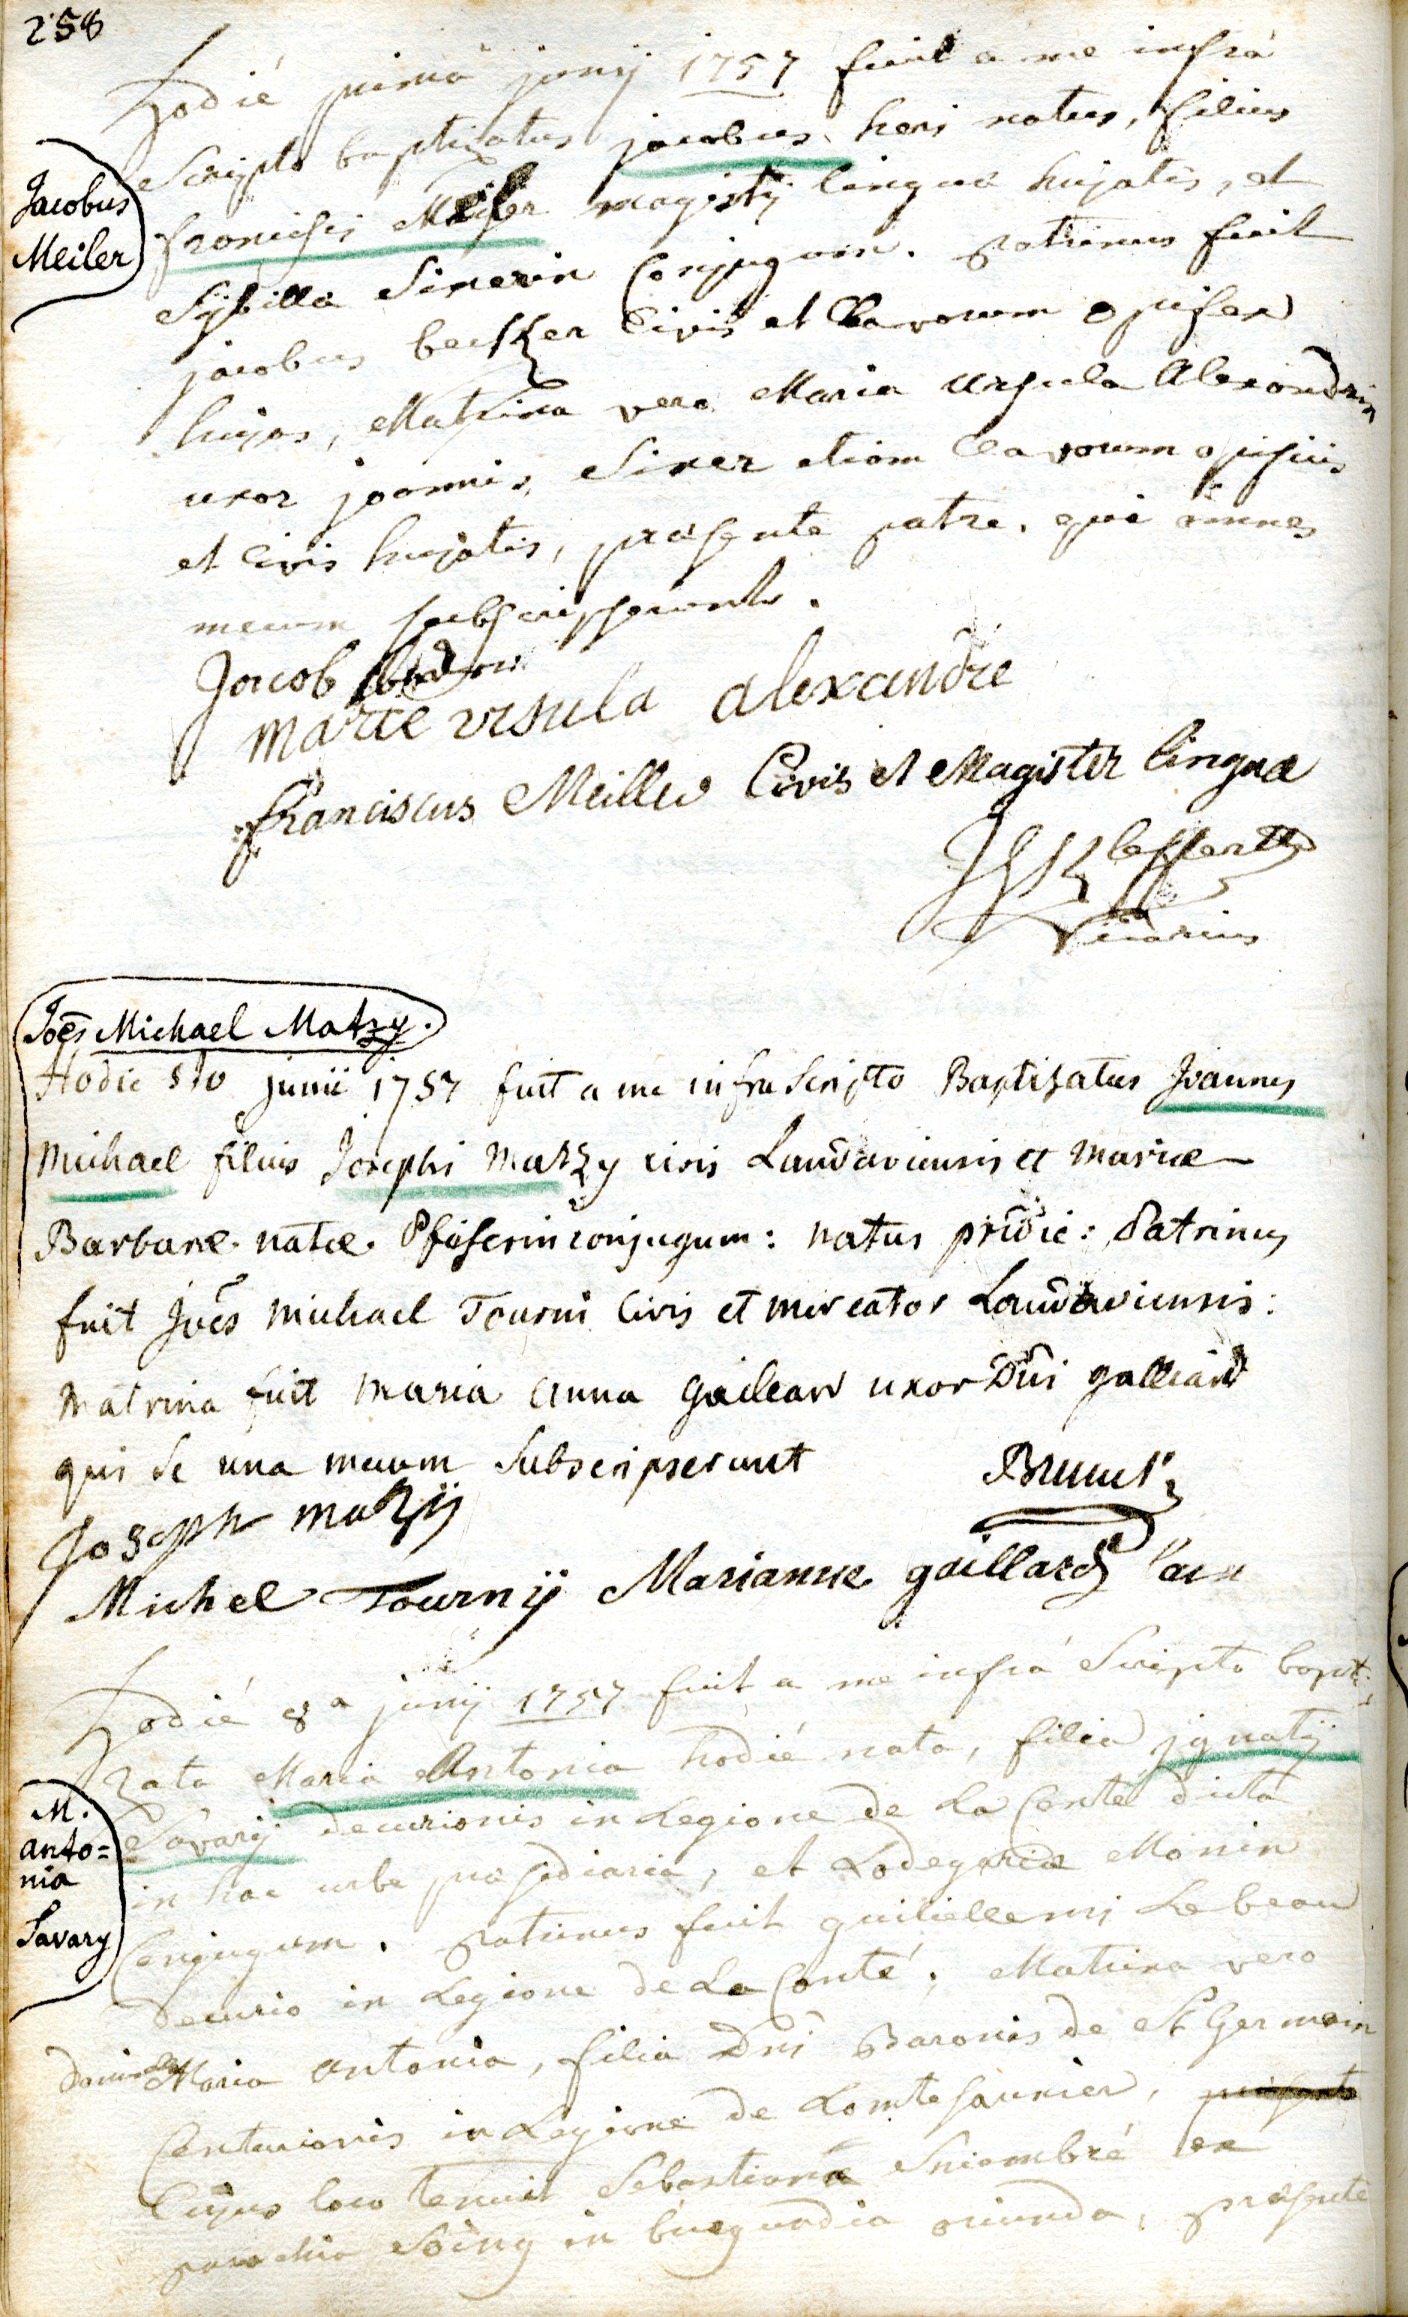 258
Hodié prima junij 1757 fuit a me infrà
Scripto baptizatus jacobus heri natus, filius
Jacobus
Meiler
francisci Meiler magistrj linguæ hujatis, et
Sybilla Sixerin Conjugum. patrinus fuit
jacobus becker Civis et Clavorum opifex
hujas, Matrina vero Maria Ursula Alexandrin
uxor joannis Sixer etiam Clavorum opificis
et Civis hujatis, præsente patre, qui omnes
mecum subscripserunt.
Jacob
marie vrsula alexandre
franciscus Meiller Civis et Magister linguæ
Vicarius
Joẽs Michael Matzy.
Hodie 5to junii 1757 fuit a me infra Scripto Baptizatus Joannes
Michael filius Josephi Matzy civis Landaviensis et Mariæ
Barbaræ natæ Pfisterin conjugum: natus pridie: Patrinus
fuit Joẽs Michael Tourni Civis et mercator Landaviensis:
Matrina fuit Maria Anna Gailear uxor Dñi galliard
qui se una mecum Subscripserunt
Joseph matzij
Michel Tournÿ Marianne gaillard
Hodié 8a junij 1757 fuit a me infrà Scripto bapti
zata Maria Antonia hodié nata, filia jgnatij
M.
anto=
nia
Savary
Savarij decurionis in Legione de La Conté dicta
in hac urbe præsidiaria, et Lodegariæ Monin
Conjugum. patrinus fuit guiliellems Le beau
decurio in Legione de La Conté, Matrina vero
Maria Antonia, filia Dñi Baronis de St Germain
Centurionis in Legione de Lomte saunier,
Cujus loco tenuit Sebastiana Sniembré ex
parochia Soing in burgundia oriunda, præsente